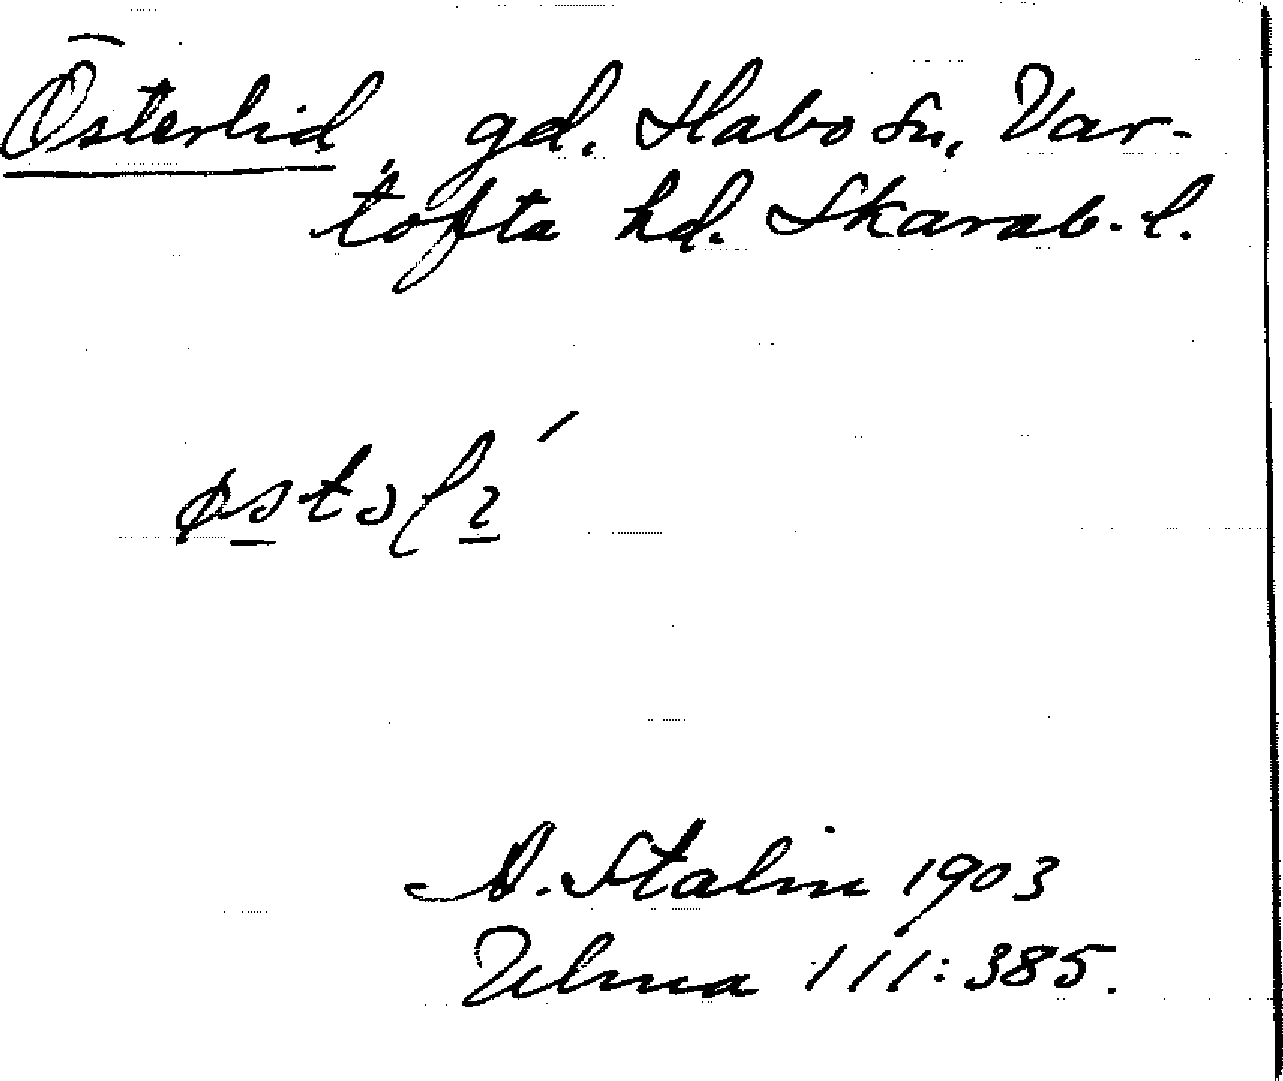 Österlid, gd. Habo sn, Var-
tofta hd. Skarab. l.
A. Stalin 1903
Ulma 111:385.